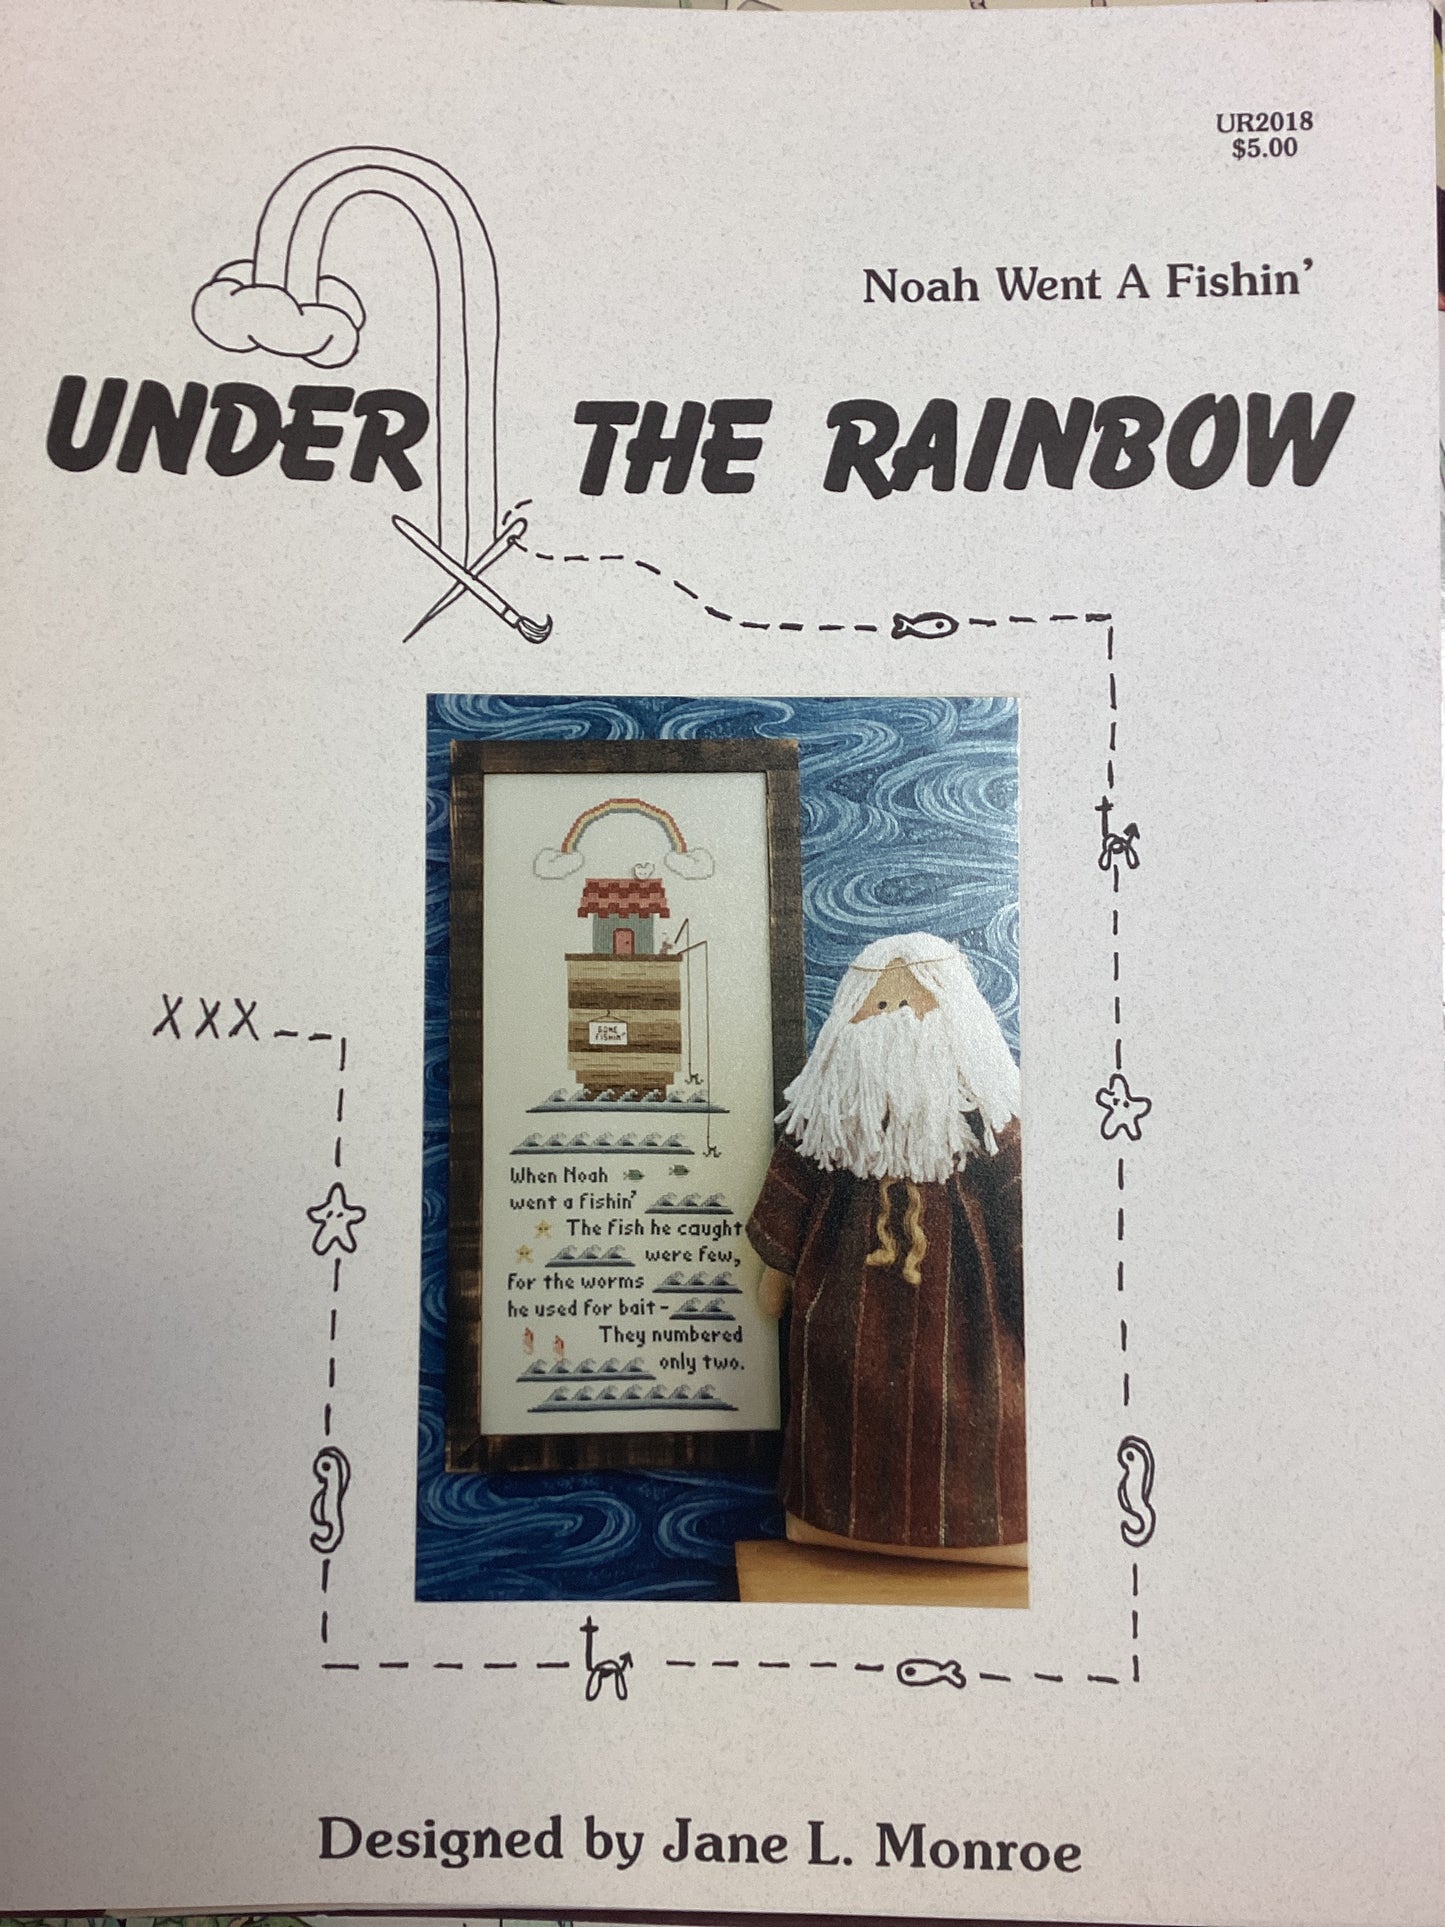 UR2018
$5.00
Noah Went A Fishin'
UNDER THE RAINBOW
XXX
GONE
FISHIN'
When Noah
went a fishin'
The fish he caught
were few,
For the worms
he used for bait-
They numbered
only two.
Designed by Jane L. Monroe